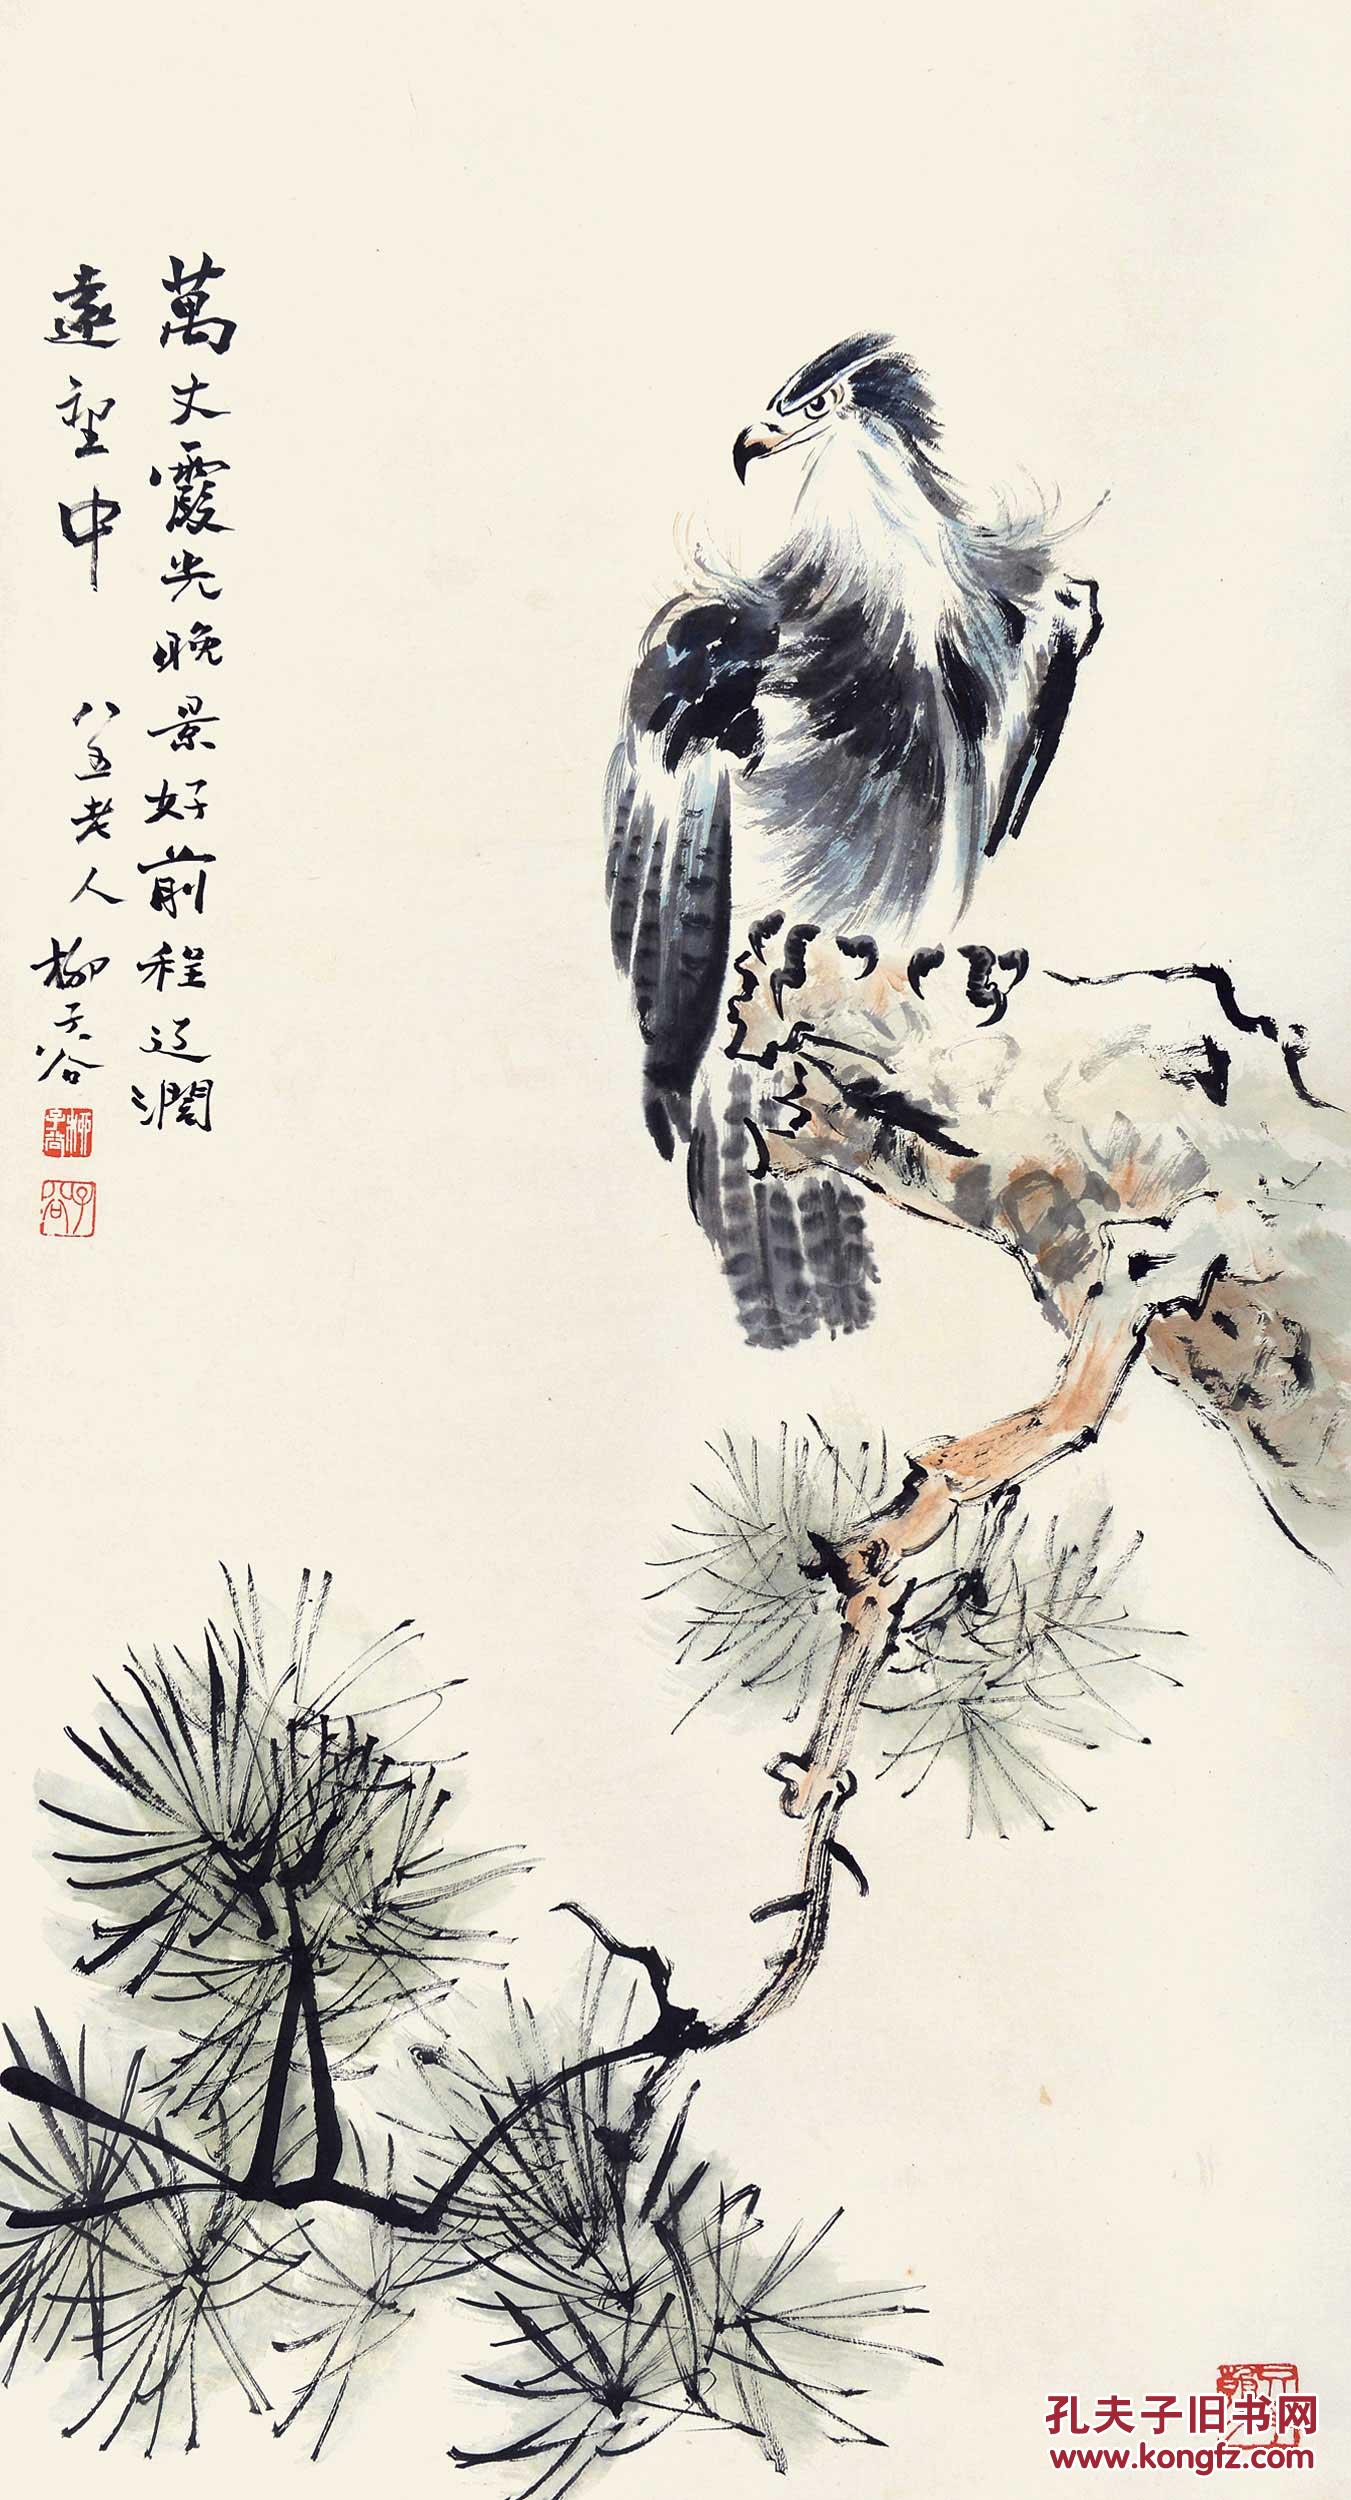 萬丈霞光晚景好前程辽濶
遠望中
八五老人柳子谷
柳子谷
子谷
孔夫子旧书网
www.kongfz.com